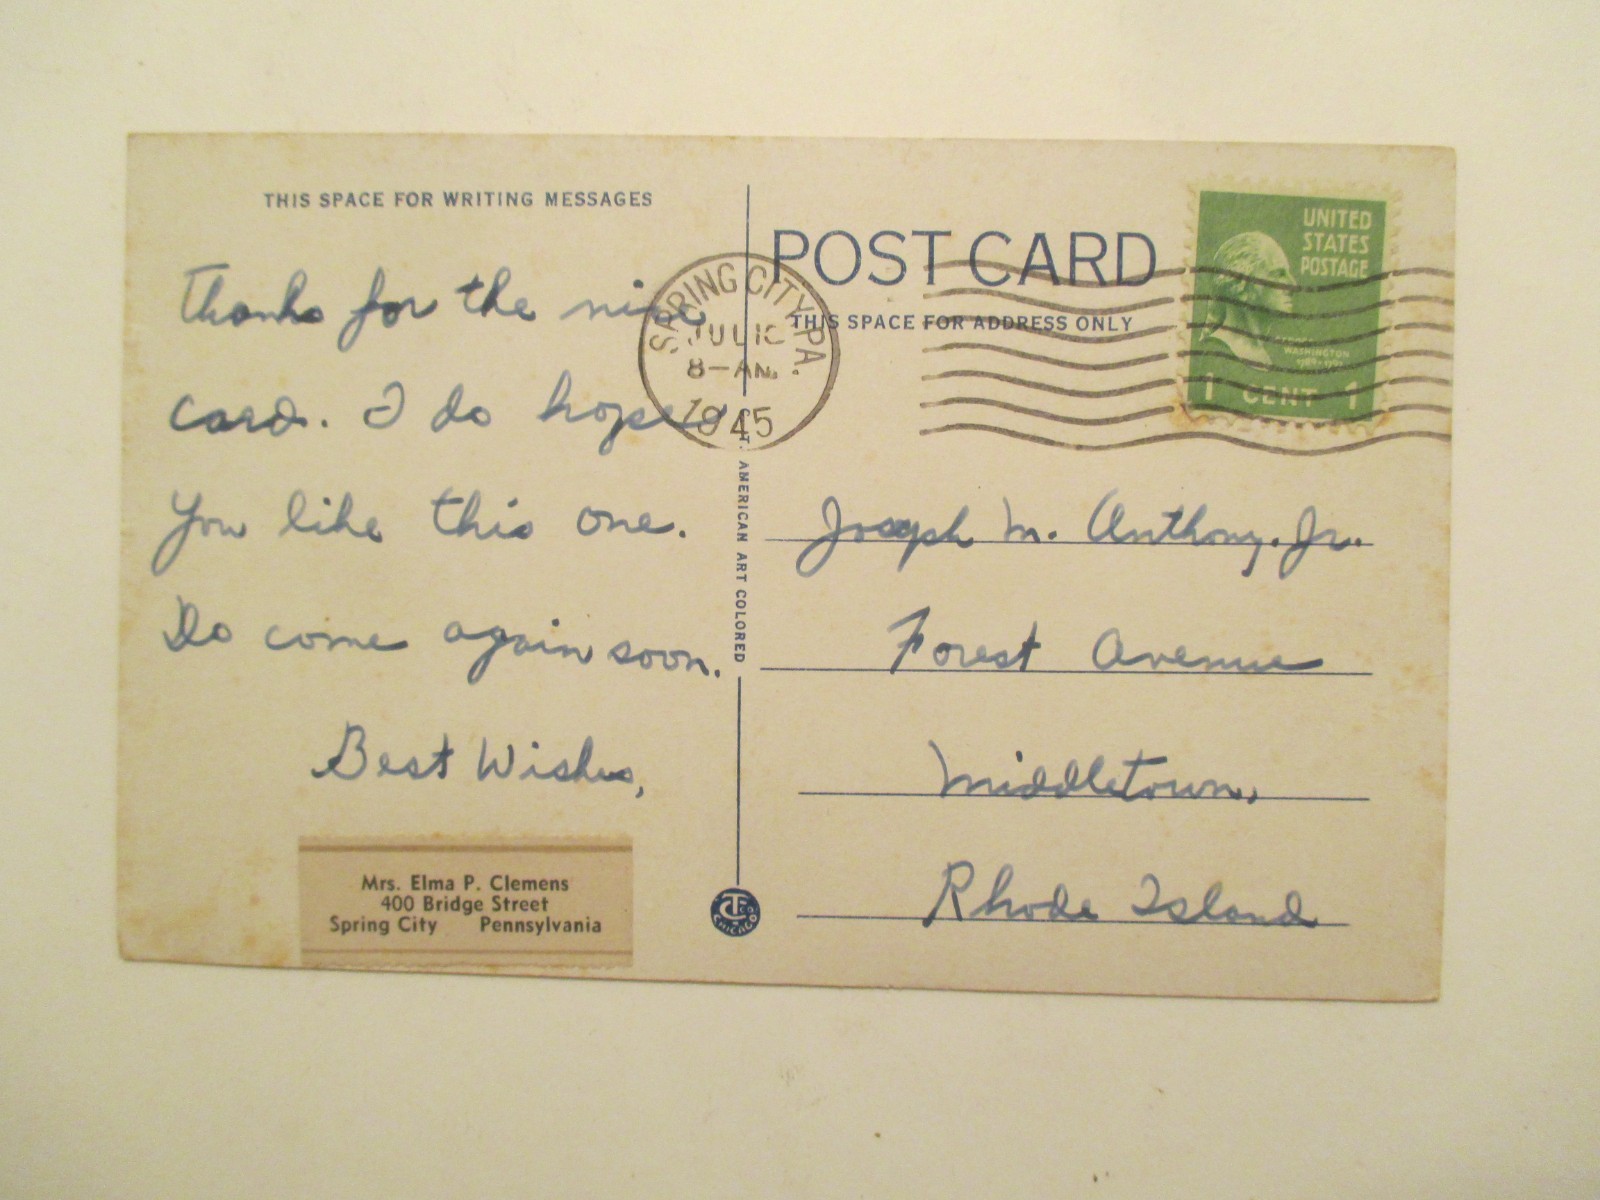 THIS SPACE FOR WRITING MESSAGES
Thanks for the nice
card. I do hope
you like this one.
Do come again soon.
Best Wishes,
Mrs. Elma P. Clemens
400 Bridge Street
Spring City Pennsylvania
SPRING CITY, PA.
JUL
8-AM
1945
C.T. AMERICAN ART COLORED
CHICAGO
POST CARD
THIS SPACE FOR ADDRESS ONLY
UNITED
STATES
POSTAGE
GEORGE
WASHINGTON
1 CENT 1
Joseph M. Anthony, Jr.
Forest Avenue
Middletown,
Rhode Island